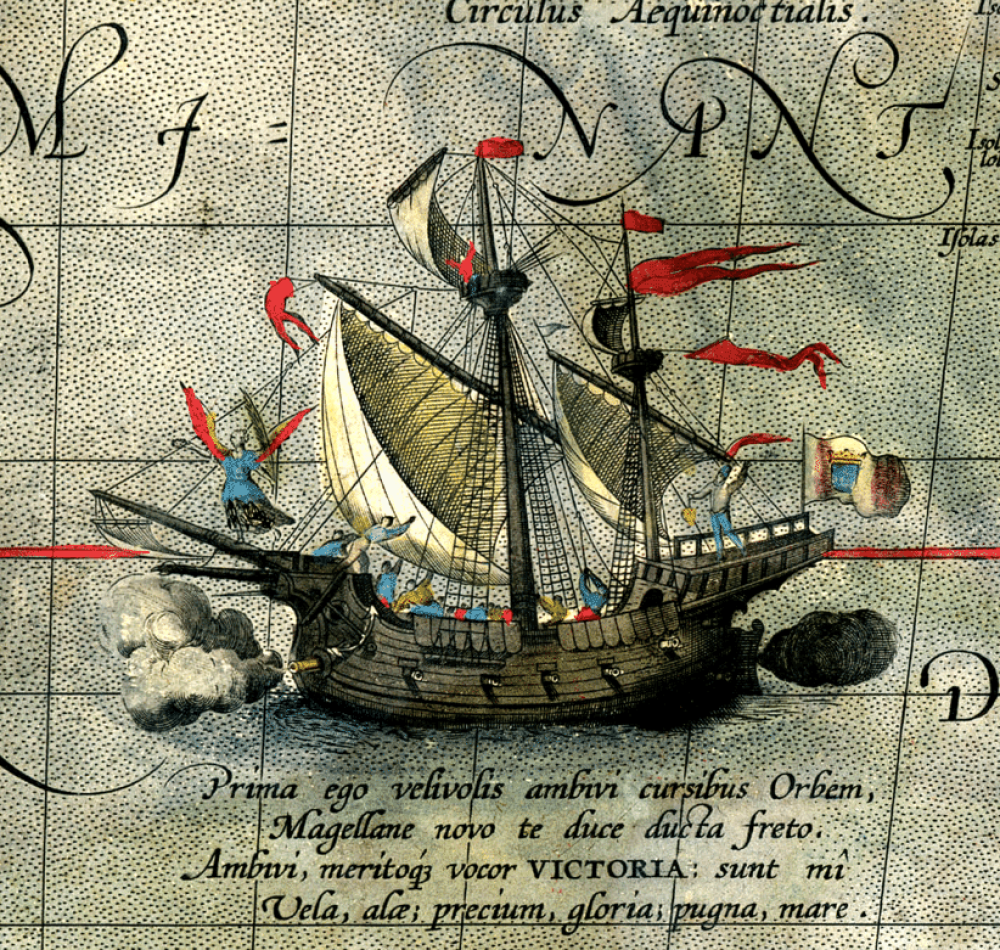 Circulus Aequinoctialis.
M I = N I N T
Isolas
D
Prima ego velivolis ambivi cursibus Orbem,
Magellane novo te duce ducta freto.
Ambivi, meritoqꝫ vocor VICTORIA: sunt mî
Vela, alæ; precium, gloria; pugna, mare.